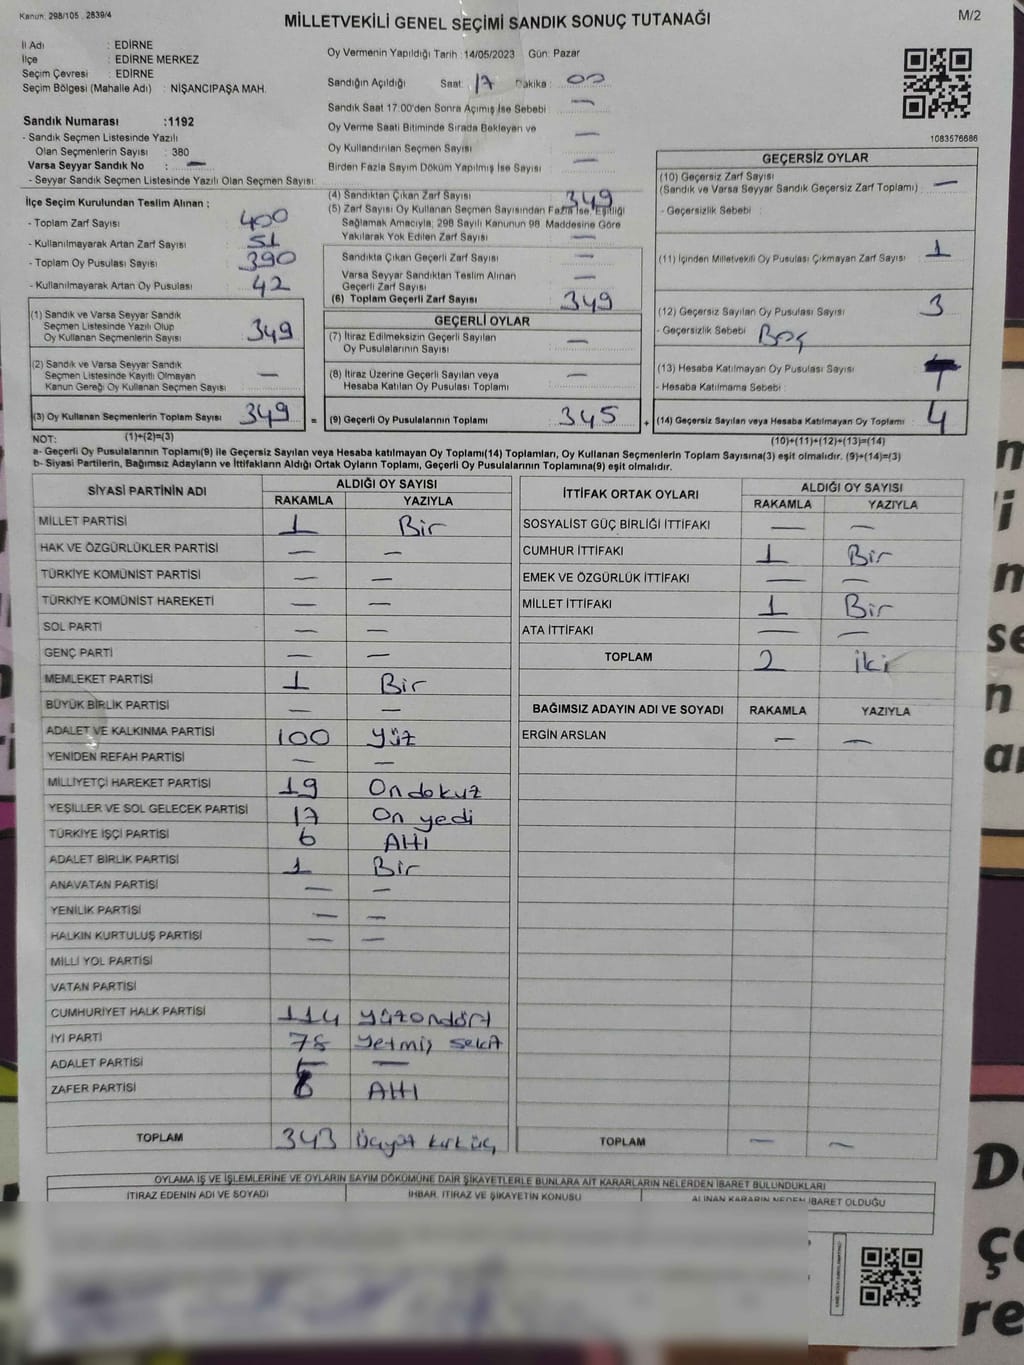 Kanun: 298/105 , 2839/4
MİLLETVEKİLİ GENEL SEÇİMİ SANDIK SONUÇ TUTANAĞI
M/2
İl Adı : EDİRNE
İlçe : EDİRNE MERKEZ
Seçim Çevresi : EDİRNE
Seçim Bölgesi (Mahalle Adı) : NİŞANCIPAŞA MAH.
Sandık Numarası :1192
- Sandık Seçmen Listesinde Yazılı
Olan Seçmenlerin Sayısı : 380
Varsa Seyyar Sandık No : —
- Seyyar Sandık Seçmen Listesinde Yazılı Olan Seçmen Sayısı:
Oy Vermenin Yapıldığı Tarih :14/05/2023 Gün: Pazar
Sandığın Açıldığı Saat: 17 Dakika : 00
Sandık Saat 17:00'den Sonra Açımış İse Sebebi : —
Oy Verme Saati Bitiminde Sırada Bekleyen ve
Oy Kullandırılan Seçmen Sayısı : —
Birden Fazla Sayım Döküm Yapılmış İse Sayısı : —
1083576686
İlçe Seçim Kurulundan Teslim Alınan :
- Toplam Zarf Sayısı : 400
- Kullanılmayarak Artan Zarf Sayısı : 51
- Toplam Oy Pusulası Sayısı : 390
- Kullanılmayarak Artan Oy Pusulası : 42
(1) Sandık ve Varsa Seyyar Sandık
Seçmen Listesinde Yazılı Olup
Oy Kullanan Seçmenlerin Sayısı : 349
(2) Sandık ve Varsa Seyyar Sandık
Seçmen Listesinde Kayıtlı Olmayan
Kanun Gereği Oy Kullanan Seçmen Sayısı : —
(3) Oy Kullanan Seçmenlerin Toplam Sayısı : 349 =
(1)+(2)=(3)
(4) Sandıktan Çıkan Zarf Sayısı : 349
(5) Zarf Sayısı Oy Kullanan Seçmen Sayısından Fazla İse, Eşitliği
Sağlamak Amacıyla; 298 Sayılı Kanunun 98. Maddesine Göre
Yakılarak Yok Edilen Zarf Sayısı : —
Sandıkta Çıkan Geçerli Zarf Sayısı : —
Varsa Seyyar Sandıktan Teslim Alınan
Geçerli Zarf Sayısı : —
(6) Toplam Geçerli Zarf Sayısı : 349
GEÇERLİ OYLAR
(7) İtiraz Edilmeksizin Geçerli Sayılan
Oy Pusulalarının Sayısı : —
(8) İtiraz Üzerine Geçerli Sayılan veya
Hesaba Katılan Oy Pusulası Toplamı : —
(9) Geçerli Oy Pusulalarının Toplamı : 345 +
GEÇERSİZ OYLAR
(10) Geçersiz Zarf Sayısı
(Sandık ve Varsa Seyyar Sandık Geçersiz Zarf Toplamı) : —
- Geçersizlik Sebebi :
(11) İçinden Milletvekili Oy Pusulası Çıkmayan Zarf Sayısı : 1
(12) Geçersiz Sayılan Oy Pusulası Sayısı : 3
- Geçersizlik Sebebi : Boş
(13) Hesaba Katılmayan Oy Pusulası Sayısı :
- Hesaba Katılmama Sebebi :
(14) Geçersiz Sayılan veya Hesaba Katılmayan Oy Toplamı : 4
(10)+(11)+(12)+(13)=(14)
NOT:
a- Geçerli Oy Pusulalarının Toplamı(9) ile Geçersiz Sayılan veya Hesaba katılmayan Oy Toplamı(14) Toplamları, Oy Kullanan Seçmenlerin Toplam Sayısına(3) eşit olmalıdır. (9)+(14)=(3)
b- Siyasi Partilerin, Bağımsız Adayların ve İttifakların Aldığı Ortak Oyların Toplamı, Geçerli Oy Pusulalarının Toplamına(9) eşit olmalıdır.
SİYASİ PARTİNİN ADI ALDIĞI OY SAYISI
RAKAMLA YAZIYLA
MİLLET PARTİSİ 1 Bir
HAK VE ÖZGÜRLÜKLER PARTİSİ — —
TÜRKİYE KOMÜNİST PARTİSİ — —
TÜRKİYE KOMÜNİST HAREKETİ — —
SOL PARTİ — —
GENÇ PARTİ — —
MEMLEKET PARTİSİ 1 Bir
BÜYÜK BİRLİK PARTİSİ — —
ADALET VE KALKINMA PARTİSİ 100 Yüz
YENİDEN REFAH PARTİSİ — —
MİLLİYETÇİ HAREKET PARTİSİ 19 Ondokuz
YEŞİLLER VE SOL GELECEK PARTİSİ 17 On yedi
TÜRKİYE İŞÇİ PARTİSİ 6 Altı
ADALET BİRLİK PARTİSİ 1 Bir
ANAVATAN PARTİSİ — —
YENİLİK PARTİSİ — —
HALKIN KURTULUŞ PARTİSİ — —
MİLLİ YOL PARTİSİ
VATAN PARTİSİ
CUMHURİYET HALK PARTİSİ 114 Yüzondört
İYİ PARTİ 78 Yetmiş sekiz
ADALET PARTİSİ — —
ZAFER PARTİSİ 6 Altı
TOPLAM 343 Üçyüz kırküç
İTTİFAK ORTAK OYLARI ALDIĞI OY SAYISI
RAKAMLA YAZIYLA
SOSYALİST GÜÇ BİRLİĞİ İTTİFAKI — —
CUMHUR İTTİFAKI 1 Bir
EMEK VE ÖZGÜRLÜK İTTİFAKI — —
MİLLET İTTİFAKI 1 Bir
ATA İTTİFAKI — —
TOPLAM 2 iki
BAĞIMSIZ ADAYIN ADI VE SOYADI RAKAMLA YAZIYLA
ERGİN ARSLAN — —
TOPLAM — —
OYLAMA İŞ VE İŞLEMLERİNE VE OYLARIN SAYIM DÖKÜMÜNE DAİR ŞİKAYETLERLE BUNLARA AİT KARARLARIN NELERDEN İBARET BULUNDUKLARI
İTİRAZ EDENİN ADI VE SOYADI İHBAR, İTİRAZ VE ŞİKAYETİN KONUSU ALINAN KARARIN NEDEN İBARET OLDUĞU